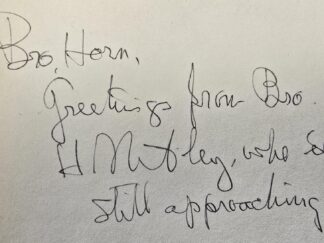 Bro. Horn,
Greetings from Bro.
H Nibley, who is
still approaching